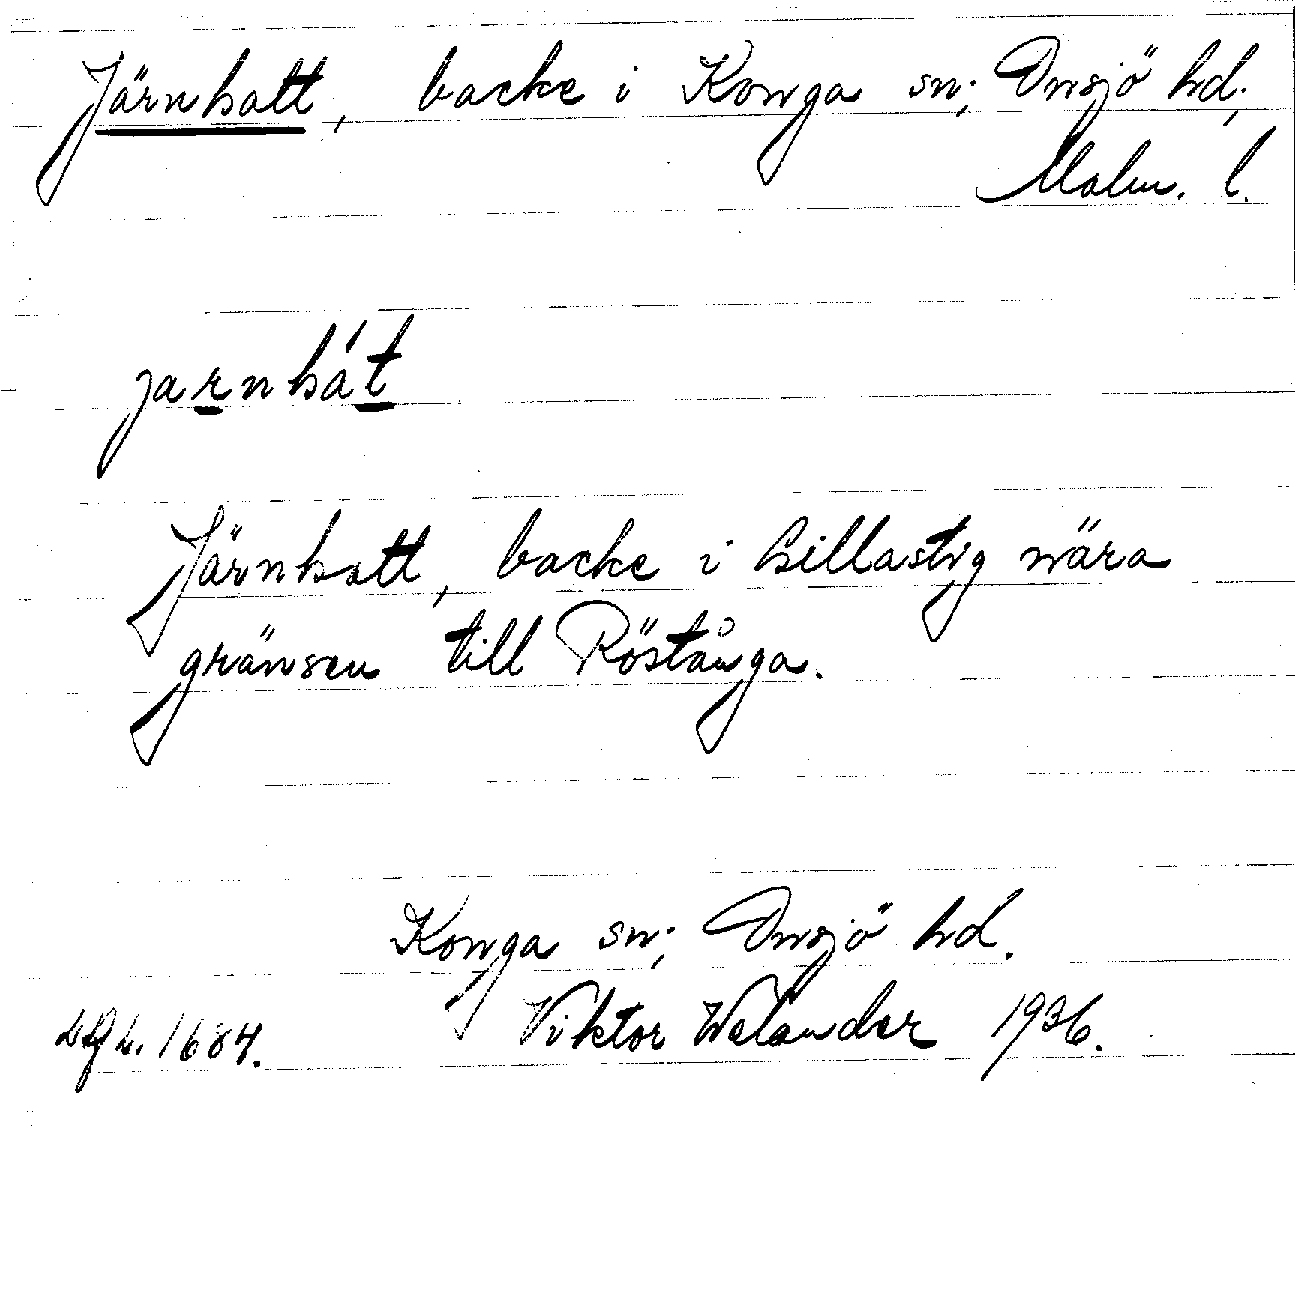 Järnhatt, backe i Konga sn; Onsjö hd.
Malm. l.
jarnhát
Järnhatt, backe i hillastig nära
gränsen till Röstånga.
Konga sn; Onsjö hd.
Viktor Welander 1936.
1684.